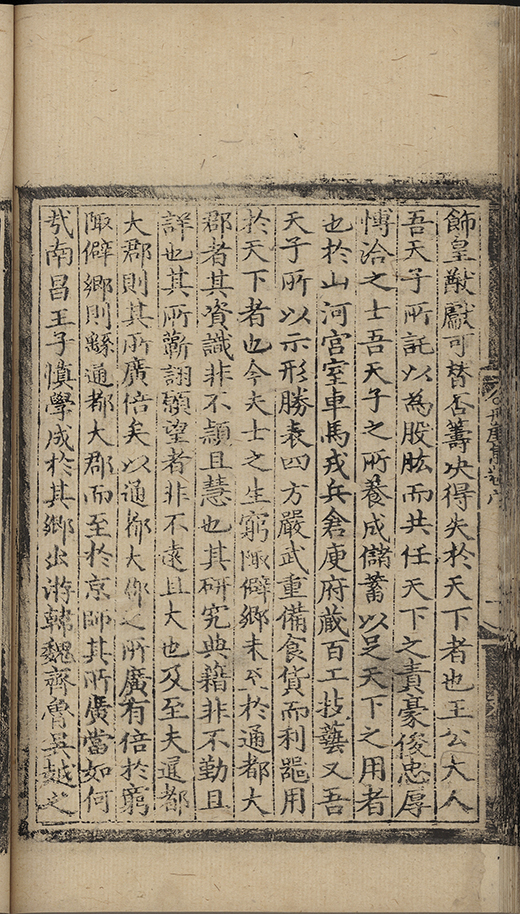 飾皇猷獻可替否籌決得失於天下者也王公大人
吾天子所託以為股肱而共任天下之責豪俊忠厚
愽洽之士吾天子之所養成儲蓄以足天下之用者
也於山河宮室車馬戎兵倉庾府蔵百工技藝又吾
天子所以示形勝表四方嚴武重備食貨而利器用
於天下者也今夫士之生窮陬僻鄉未至於通都大
郡者其資識非不頴且慧也其研究典籍非不勤且
詳也其所蘄詡顒望者非不遠且大也及至夫遐都
大郡則其所廣倍矣以通都大郡之所廣有倍於窮
陬僻鄉則繇通都大郡而至於京師其所廣當如何
㢤南昌王子慎學成於其鄉出游韓魏齊魯吳越之